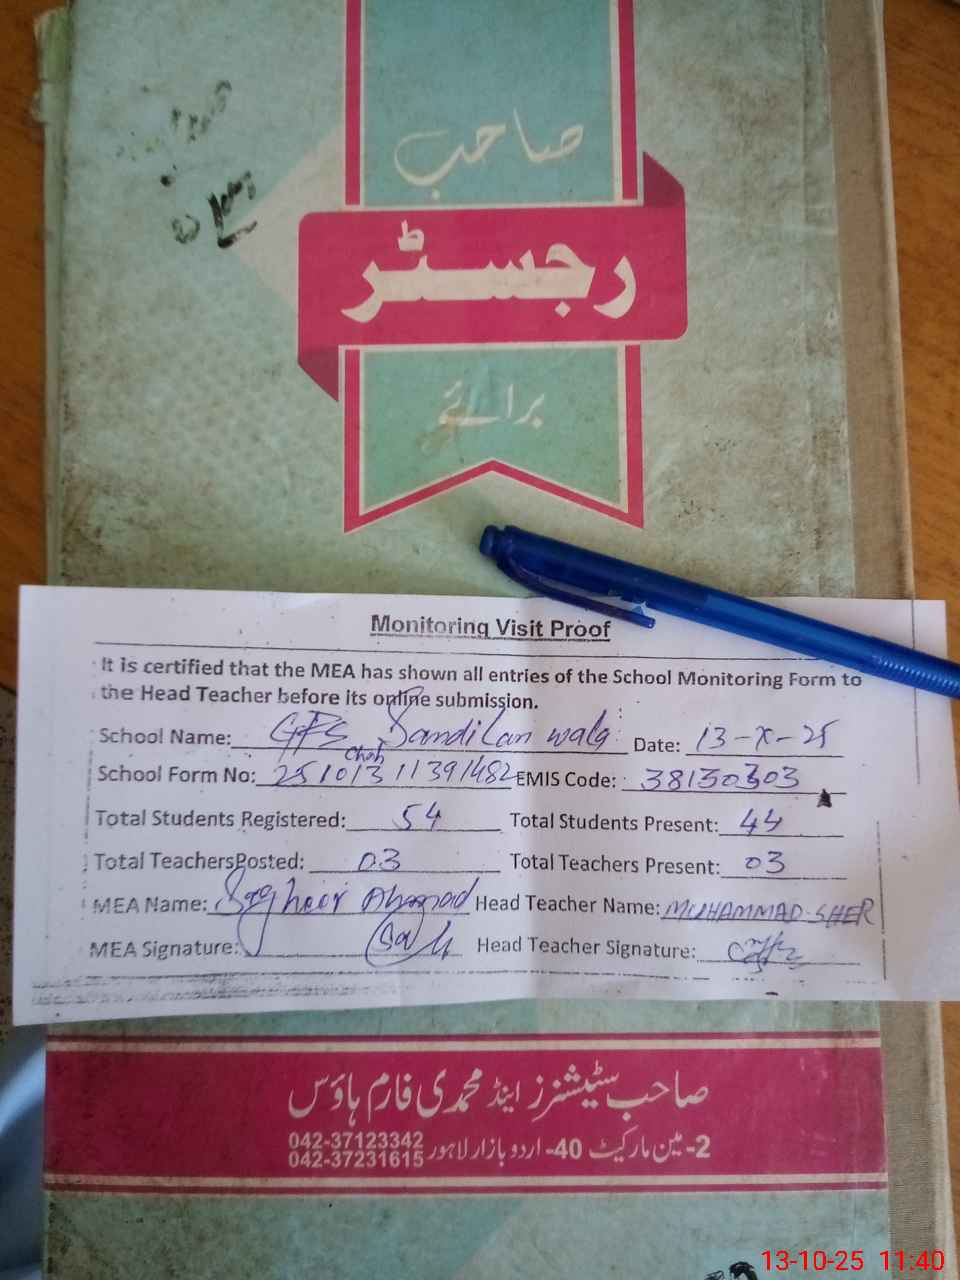 صاحب
رجسٹر
برائے
Monitoring Visit Proof
It is certified that the MEA has shown all entries of the School Monitoring Form to
the Head Teacher before its online submission.
School Name: GPS Sandilan wala Date: 13-X-25
Chah
School Form No: 25101311391482 EMIS Code: 38130303
Total Students Registered: 54 Total Students Present: 44
Total TeachersPosted: 03 Total Teachers Present: 03
MEA Name: Sagheer Ahmad Head Teacher Name: MUHAMMAD SHER
MEA Signature: Head Teacher Signature:
صاحب سٹیشنرز اینڈ محمدی فارم ہاؤس
2-مین مارکیٹ 40-اردو بازار لاہور 042-37123342
042-37231615
13-10-25 11:40